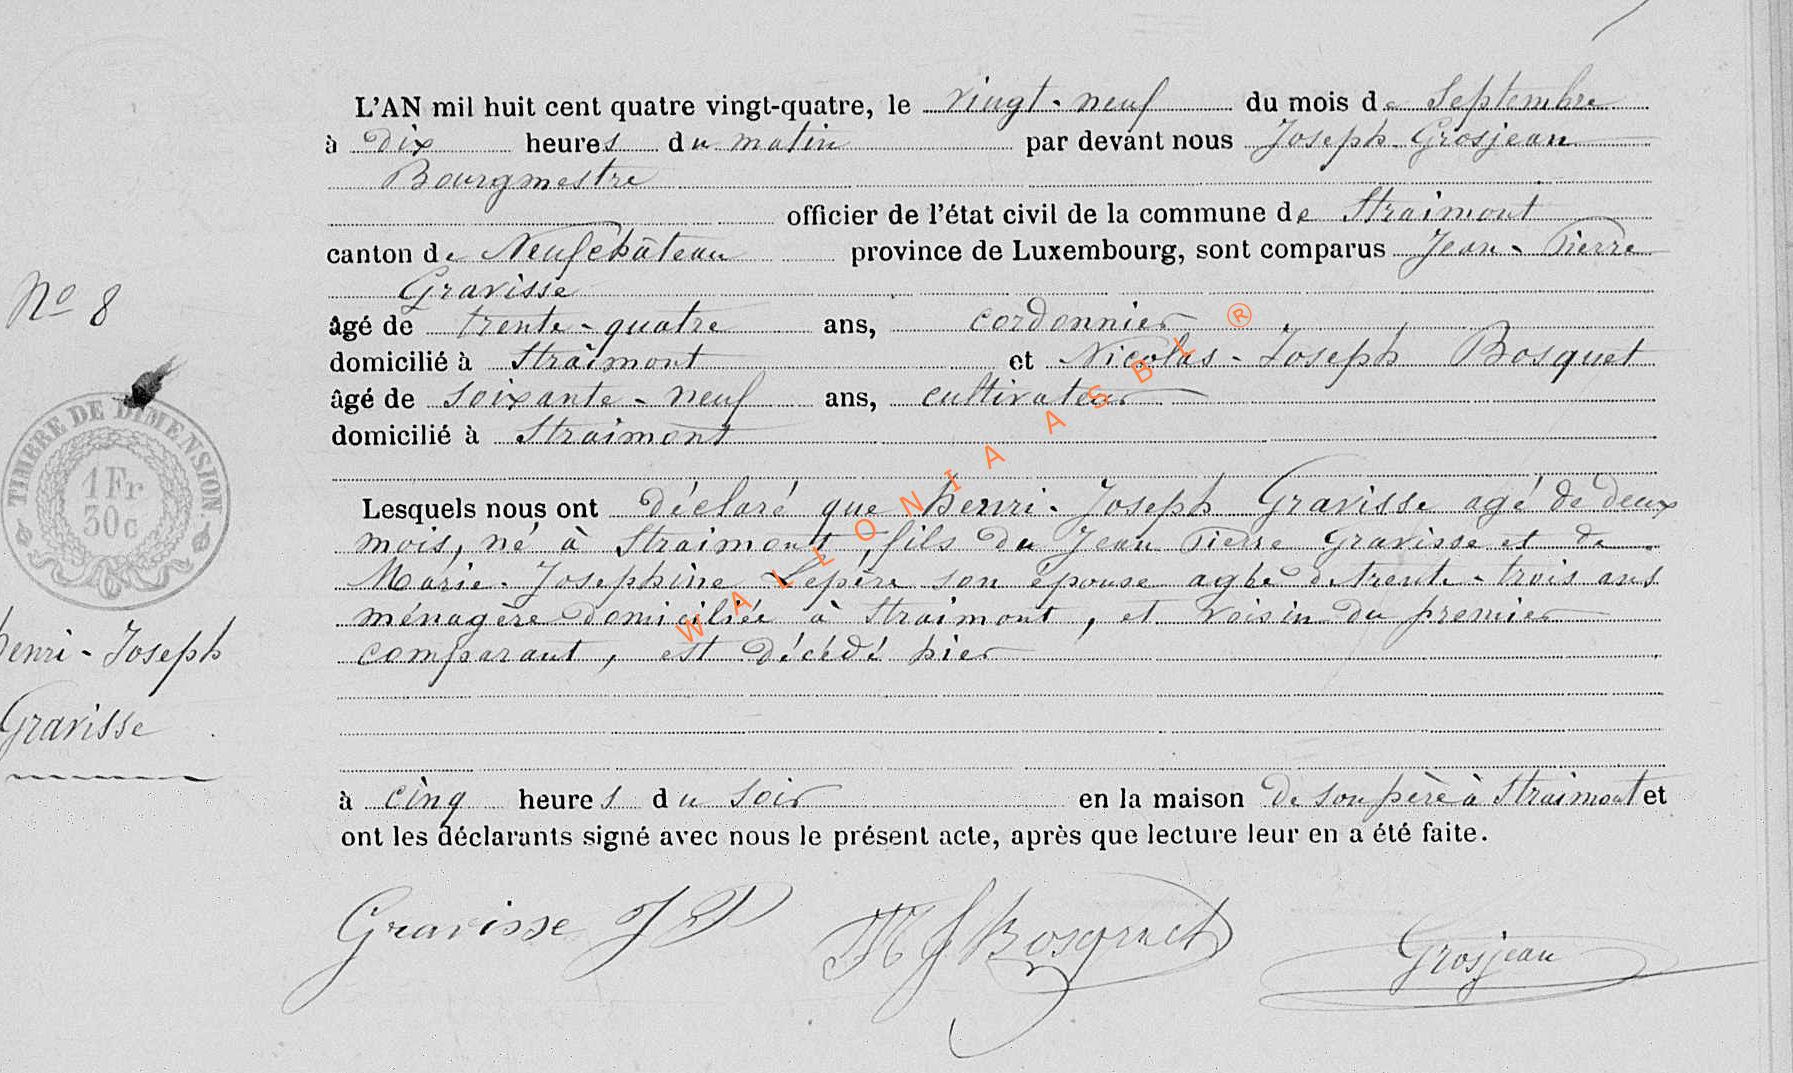 L'AN mil huit cent quatre vingt-quatre, le vingt-neuf du mois de Septembre
à dix heures du matin par devant nous Joseph Grosjean
Bourgmestre
officier de l'état civil de la commune de Straimont
canton de Neufchâteau province de Luxembourg, sont comparus Jean-Pierre
Gravisse
âgé de trente-quatre ans, cordonnier
domicilié à Straimont et Nicolas-Joseph Bosquet
âgé de soixante-neuf ans, cultivateur
domicilié à Straimont
Lesquels nous ont déclaré que henri-Joseph Gravisse agé de deux
mois, né à Straimont, fils du Jean Pierre Gravisse et de
Marie-Josephine Lepère son épouse agée de trente-trois ans
ménagère domiciliée à Straimont, et voisin du premier
comparant, est décédé hier
à cinq heures du soir en la maison de son père à Straimont et
ont les déclarants signé avec nous le présent acte, après que lecture leur en a été faite.
Gravisse JP NJ Bosquet Grosjean
No 8
TIMBRE DE DIMENSION
1 Fr
30c
henri-Joseph
Gravisse
WALLONIA ASBL ®